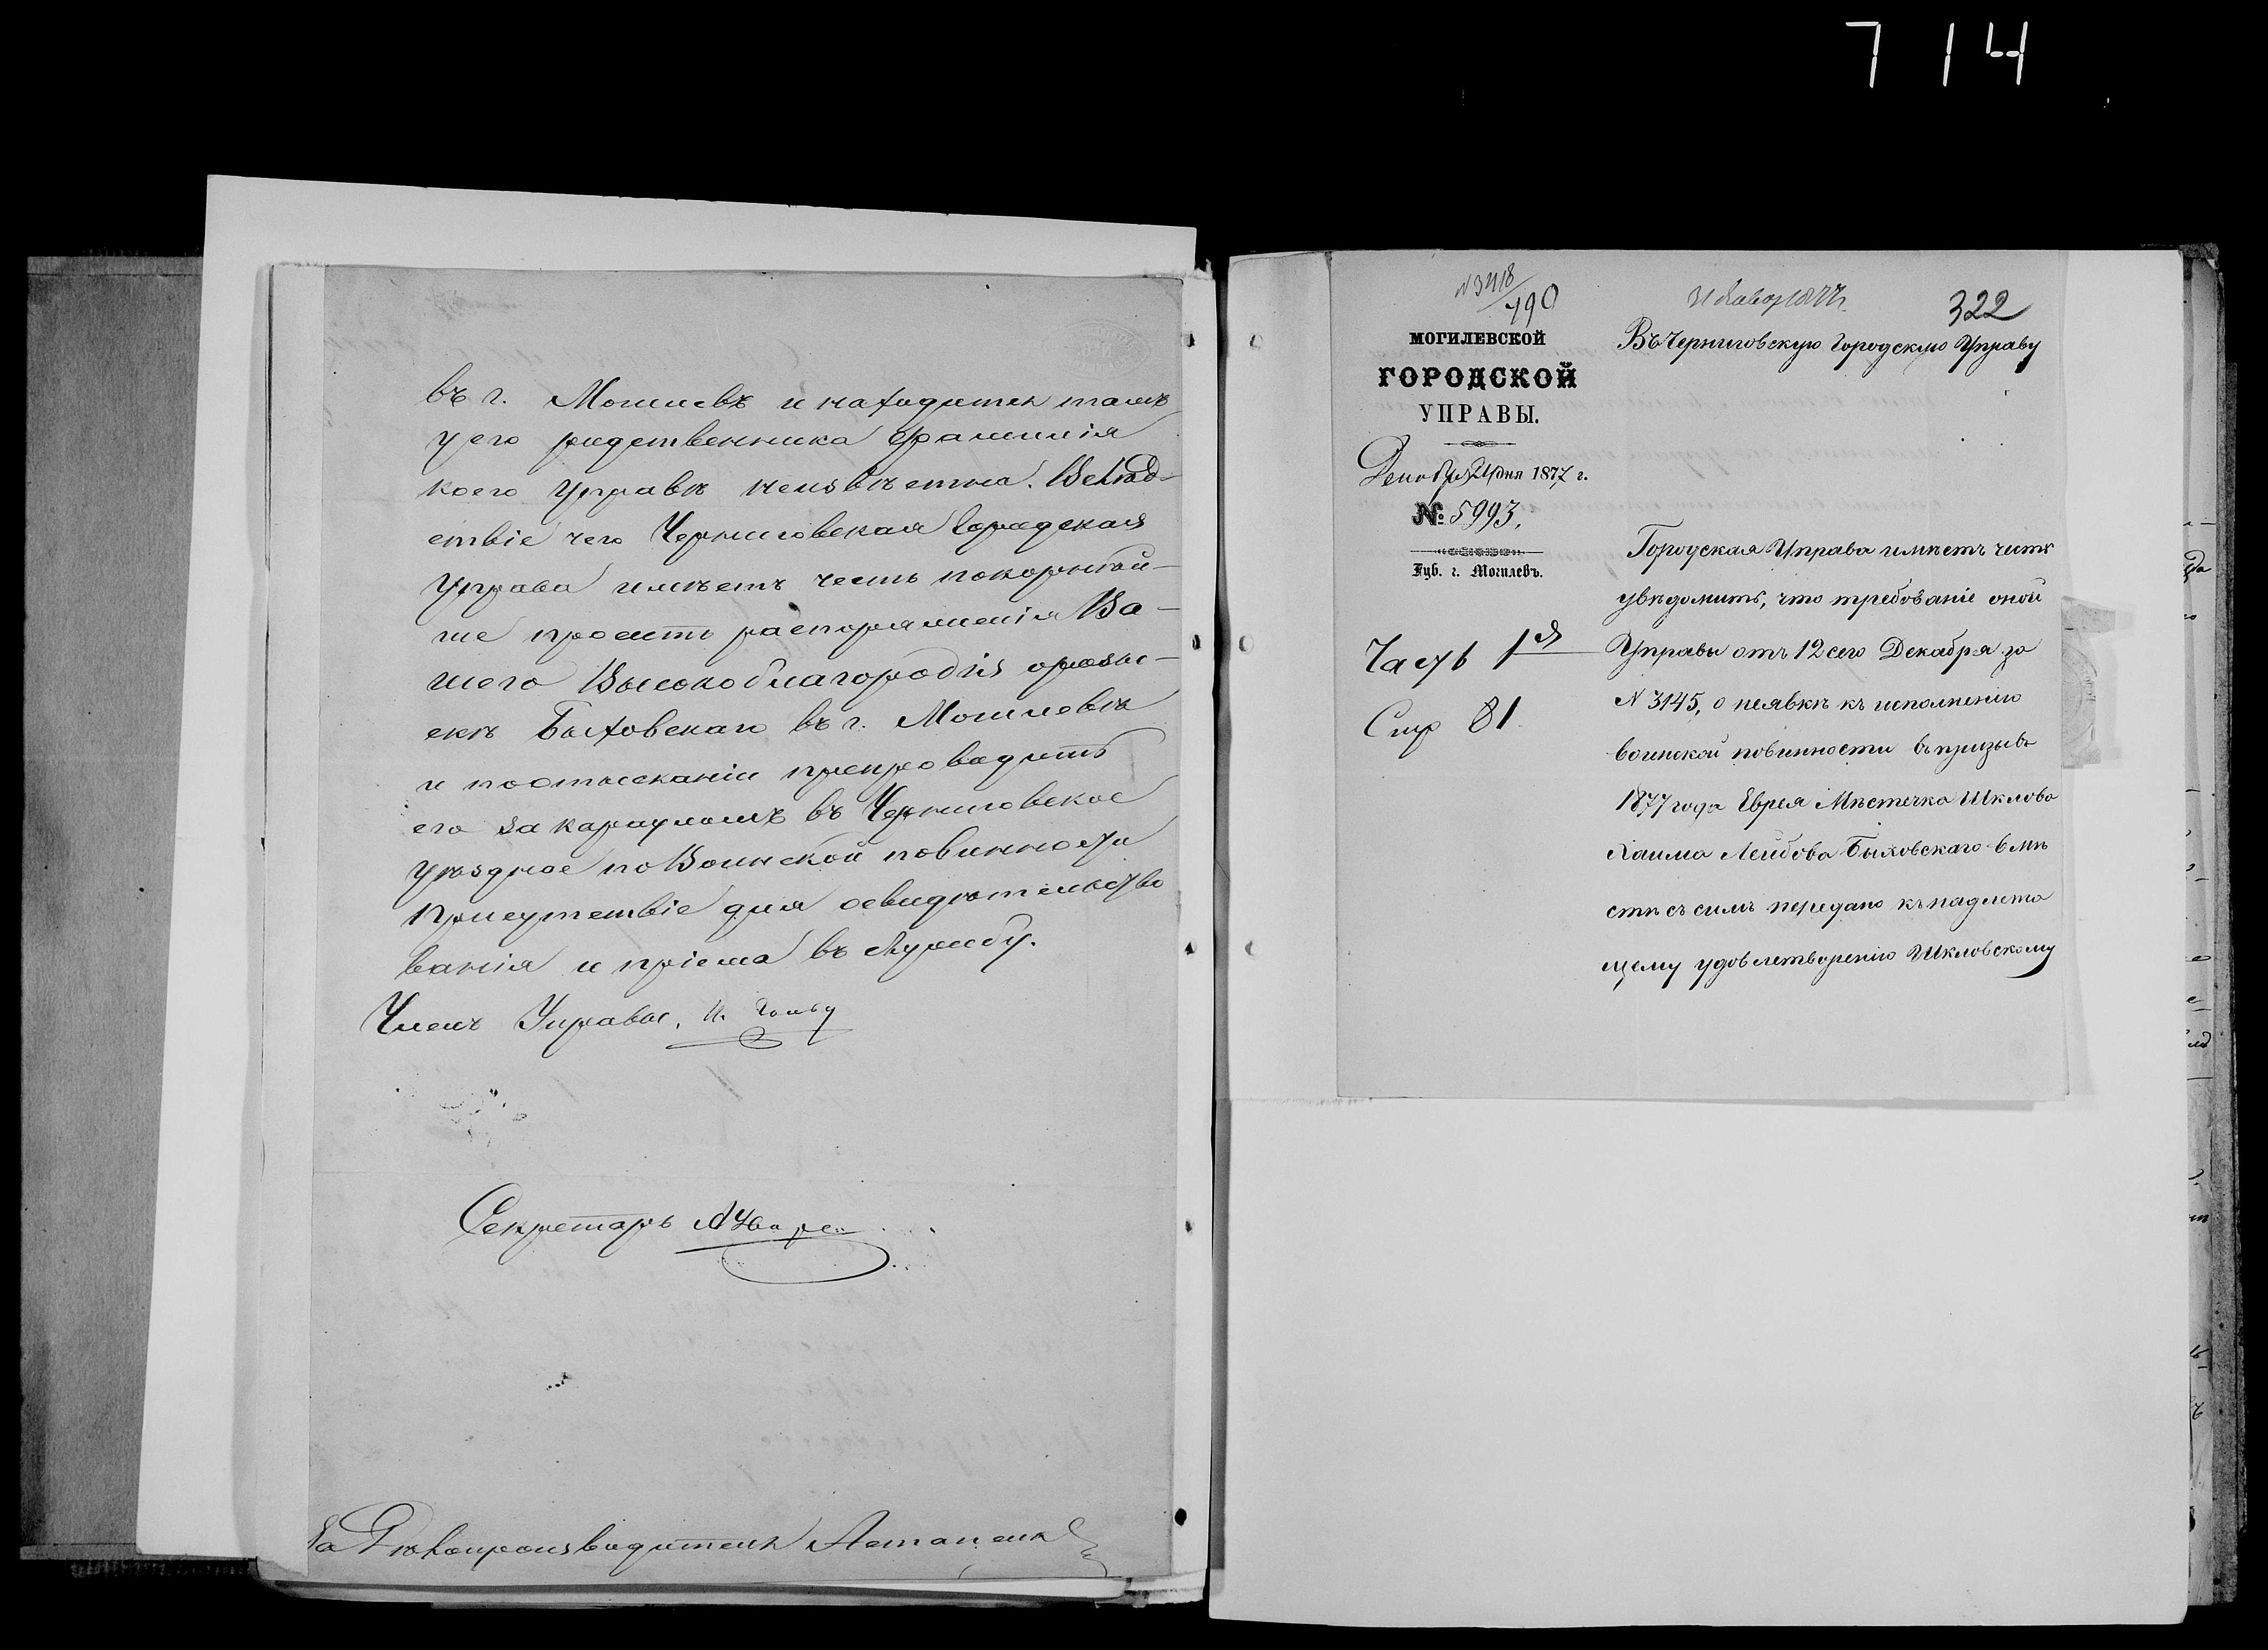 7 14
въ г. Могилевѣ и находится тамъ
у его родственника фамилія
коего Управѣ неизвѣстна. Вслѣд-
ствіе чего Черниговская Городская
Управа имѣетъ честь покорнѣй-
ше просить распоряженія Ва-
шего Высокоблагородія о розы-
скѣ Быховскаго въ г. Могилевѣ
и по отысканіи препроводить
его за карауломъ въ Черниговское
уѣздное по Воинской повинности
присутствіе для освидѣтельство
ванія и пріема въ службу.
Членъ Управы,
Секретарь
За Дѣлопроизводителя
№3418/190
322
МОГИЛЕВСКОЙ
ГОРОДСКОЙ
УПРАВЫ.
Декабря 21 дня 1877 г.
№ 5993.
Губ. г. Могилевъ.
Часть 1я
Стр 81
Въ Черниговскую Городскую Управу
Городская Управа имѣетъ честь
увѣдомить, что требованіе оной
Управы отъ 12 сего Декабря за
N 3145, о неявкѣ къ исполненію
воинской повинности въ призывъ
1877 года Еврея Мѣстечка Шклова
Хаима Лейбова Быховскаго вмѣ
стѣ съ симъ передано къ надлежа
щему удовлетворенію Шкловскому